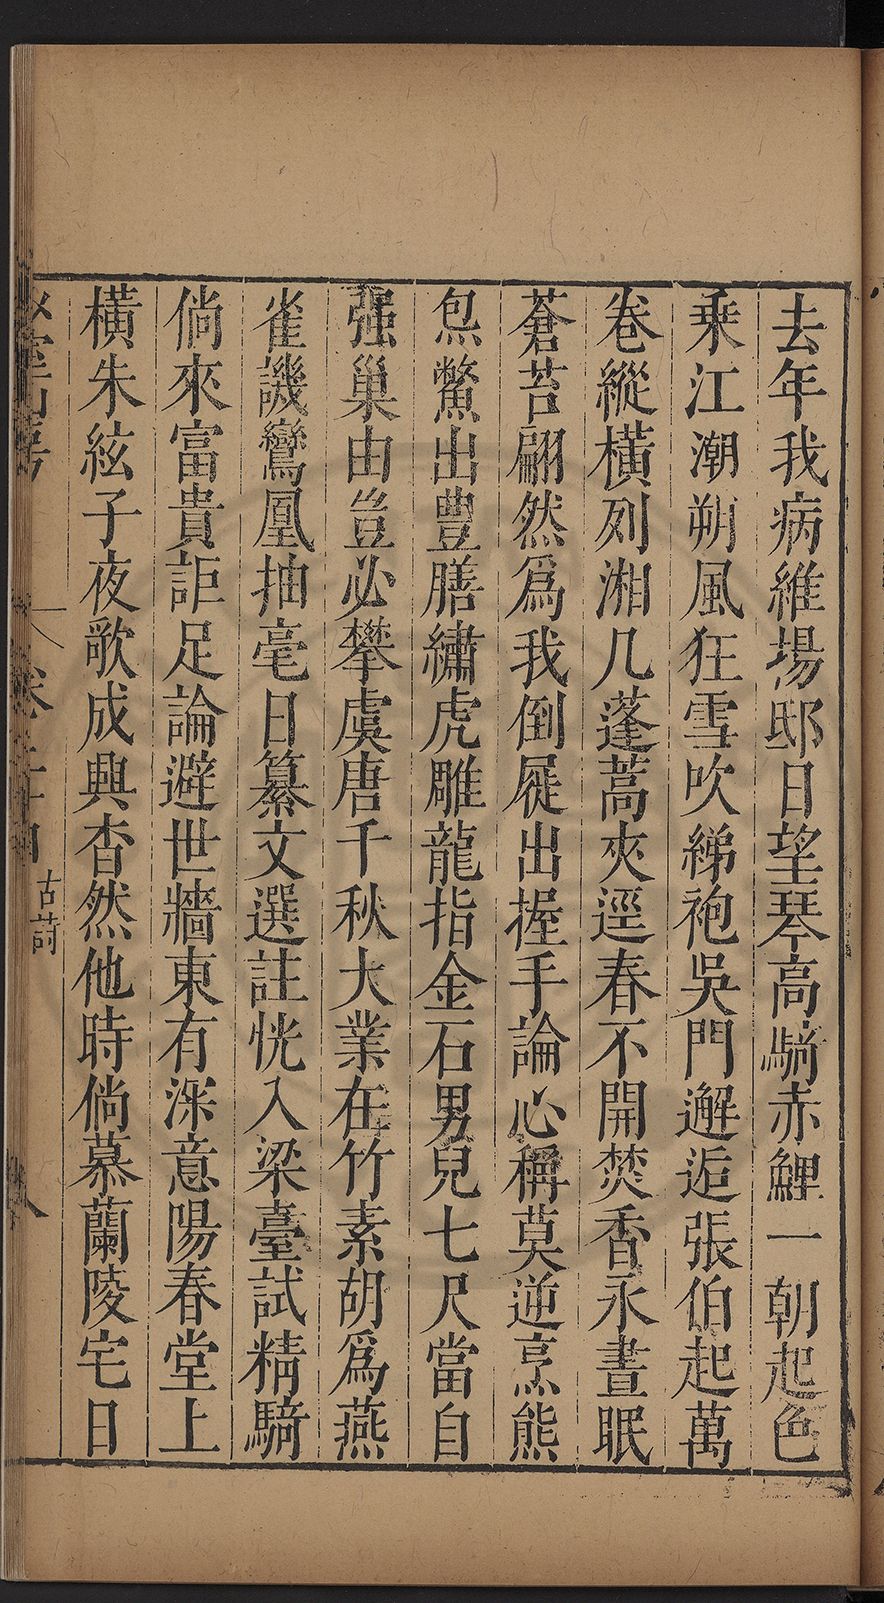 去年我病維場邸日望琴高騎赤鯉一朝起色
乗江潮朔風狂雪吹綈袍吳門邂逅張伯起萬
卷縱橫列湘几蓬蒿夾逕春不開焚香永晝眠
蒼苔翩然爲我倒屣出握手論心稱莫逆烹熊
炰鱉出豊膳繡虎雕龍指金石男兒七尺當自
强巢由豈必攀虞唐千秋大業在竹素胡爲燕
雀譏鸞凰抽毫日纂文選註恍入梁臺試精騎
倘來富貴詎足論避世牆東有深意陽春堂上
橫朱絃子夜歌成興杳然他時倘慕蘭陵宅日
卷二十四 古詩 八